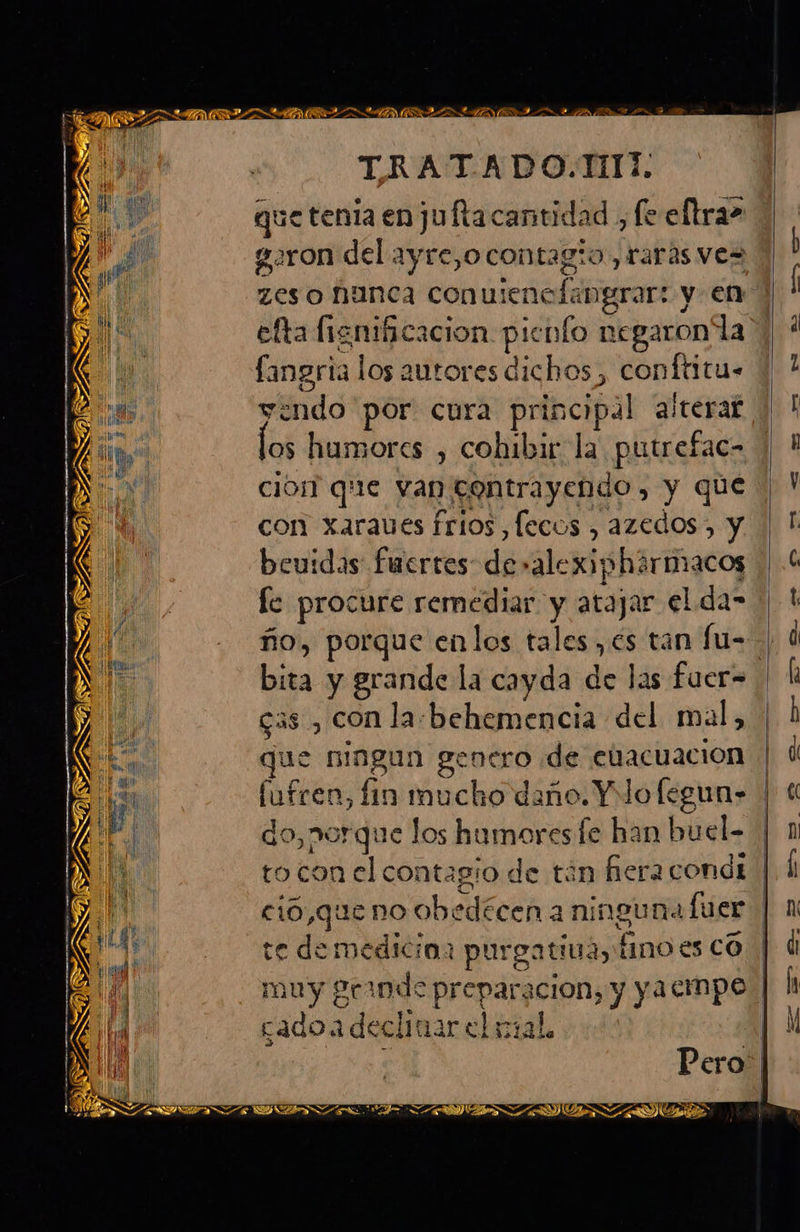 TRATADO.IIII.
que tenia en juſta cantidad , ſe eſtra-
garon del ayre,o contagio , raras ve-
zes o nunca conuiene ſangrar: y en
eſta ſignificacion pienſo negaron la
ſangria los autores dichos , conſtitu-
yendo por cura principal alterar
los humores , cohibir la putrefac-
cion que van contrayendo , y que
con xaraues frios , ſecos , azedos , y
beuidas fuertes de alexiphármacos
ſe procure remediar y atajar el da-
ño, porque en los tales , es tan ſu-
bita y grande la cayda de las fuer-
ças , con la behemencia del mal,
que ningun genero de euacuacion
ſufren, ſin mucho daño. Y lo ſegun-
do, porque los humores ſe han buel-
to con el contagio de tan fiera condi
ciō,que no obedécen a ninguna ſuer
te de medicina purgatiua, ſino es cō
muy grande preparacion, y ya empe
çado a declinar el mal.
Pero